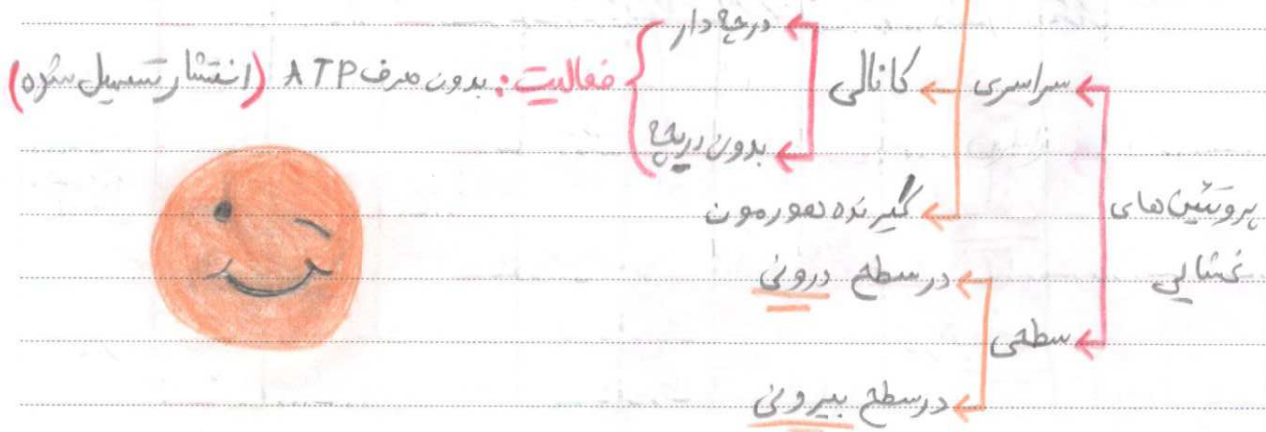 پروتئین‌های غشایی
سراسری
کانالی
دریچه دار
بدون دریچه
فعالیت: بدون صرف ATP (انتشار تسهیل شده)
گیرنده هورمون
سطحی
در سطح درونی
در سطح بیرونی